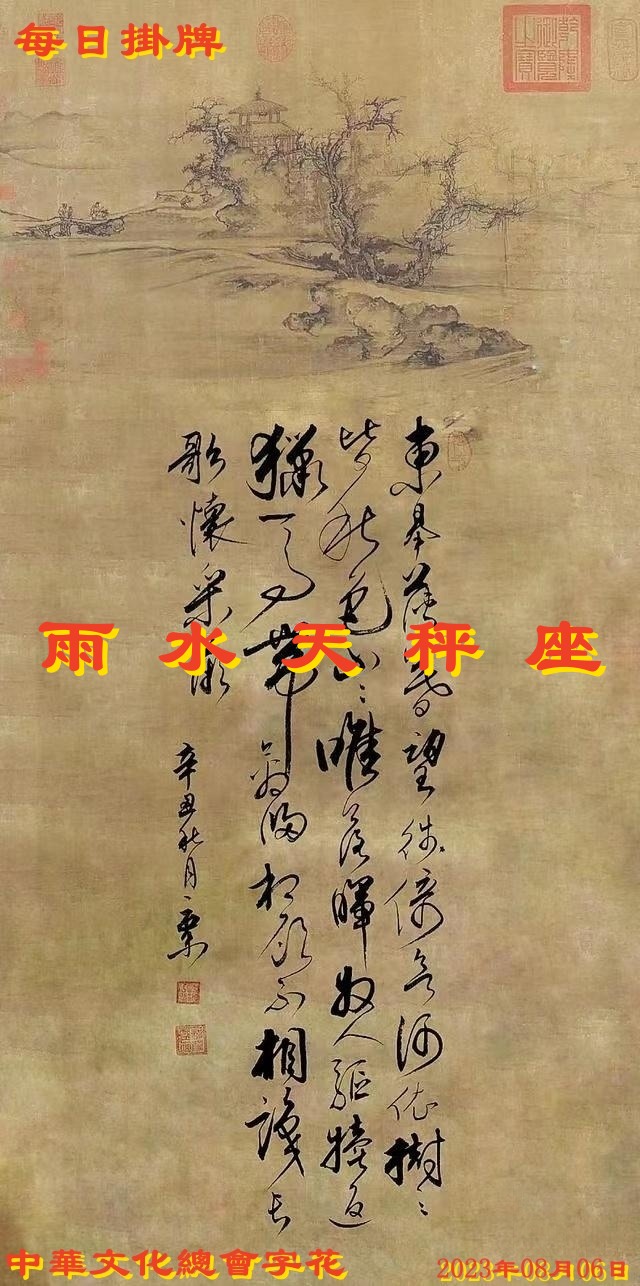 每日掛牌
乾隆御覽之寶
東皋薄暮望徙倚欲何依樹〻
皆秋色山〻唯落暉牧人驅犢返
獵馬帶禽歸相顧無相識長
歌懷采薇
辛丑秋月
雨水天秤座
中華文化總會字花
2023年08月06日